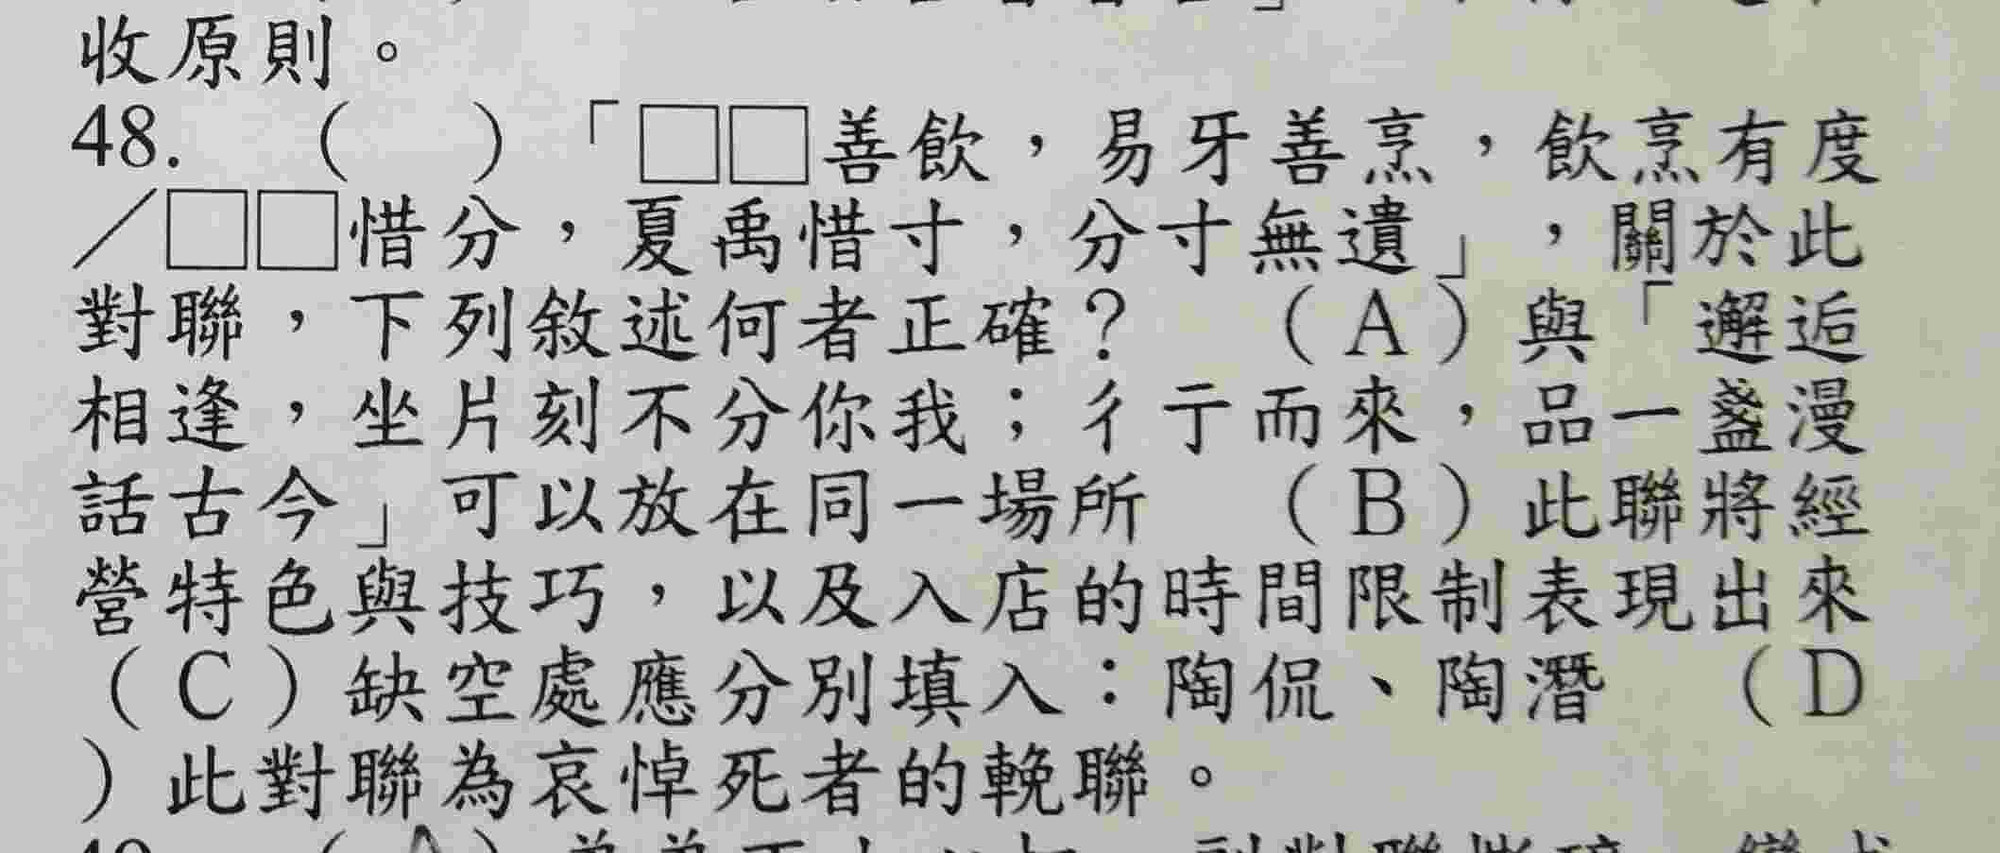 收原則。
48. （　）「□□善飲，易牙善烹，飲烹有度
／□□惜分，夏禹惜寸，分寸無遺」，關於此
對聯，下列敘述何者正確？ （A）與「邂逅
相逢，坐片刻不分你我；彳亍而來，品一盞漫
話古今」可以放在同一場所 （B）此聯將經
營特色與技巧，以及入店的時間限制表現出來
（C）缺空處應分別填入：陶侃、陶潛 （D
）此對聯為哀悼死者的輓聯。